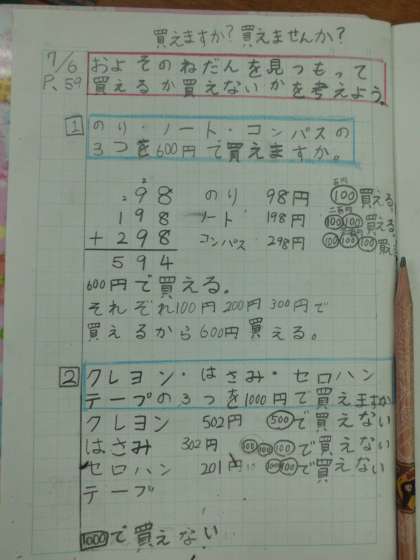 買えますか?買えませんか?
7/6
P.59
およそのねだんを見つもって
買えるか買えないかを考えよう。
1 のり・ノート・コンパスの
3つを600円で買えますか。
98 のり 98円 100買える。
198 ノート 198円 100 100買える。
+298 コンパス 298円 100 100 100買え
594
600円で買える。
それぞれ100円 200円 300円で
買えるから600円買える。
2 クレヨン・はさみ・セロハン
テープの3つを1000円で買えますか
クレヨン 502円 500で買えない
はさみ 302円 100 100 100で買えない
セロハン 201円 100 100で買えない
テープ
1000で買えない